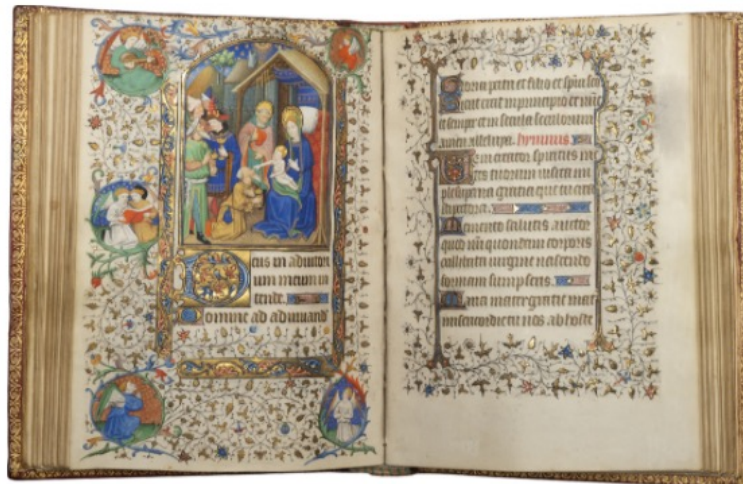 Deus in adiutori
um meum in
tende.
Domine ad adiuuand
Gloria patri et filio et
Sicut erat in principio et nunc
et semper et in secula seculorum
amen alleluya. hymnus
Veni creator spiritus m
tes tuorum visita im
ple superna gratia que tu crea
pectora.
Memento salutis auctor
quod nri quondam corporis
illibata virgine nascendo
formam sumpseris
Maria mater gratie mat
misericordie tu nos ab hoste